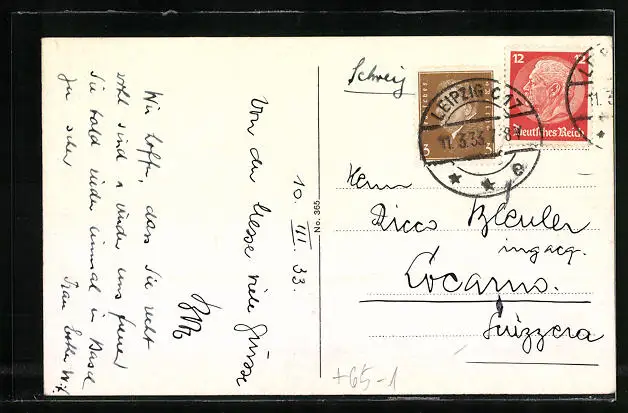 Von der Messe viele Grüsse
10. III. 33.
Wir hoffen, dass Sie recht
wohl sind & würden uns freuen
Sie bald wieder einmal in Basel
zu sehen
Frau
No. 365
Schweiz
LEIPZIG C 17
11.3.33
e
3
12 12
Deutsches Reich
11.3
Herrn
Ricco Bleuler
ing acq.
Locarno.
Svizzera
+65-1